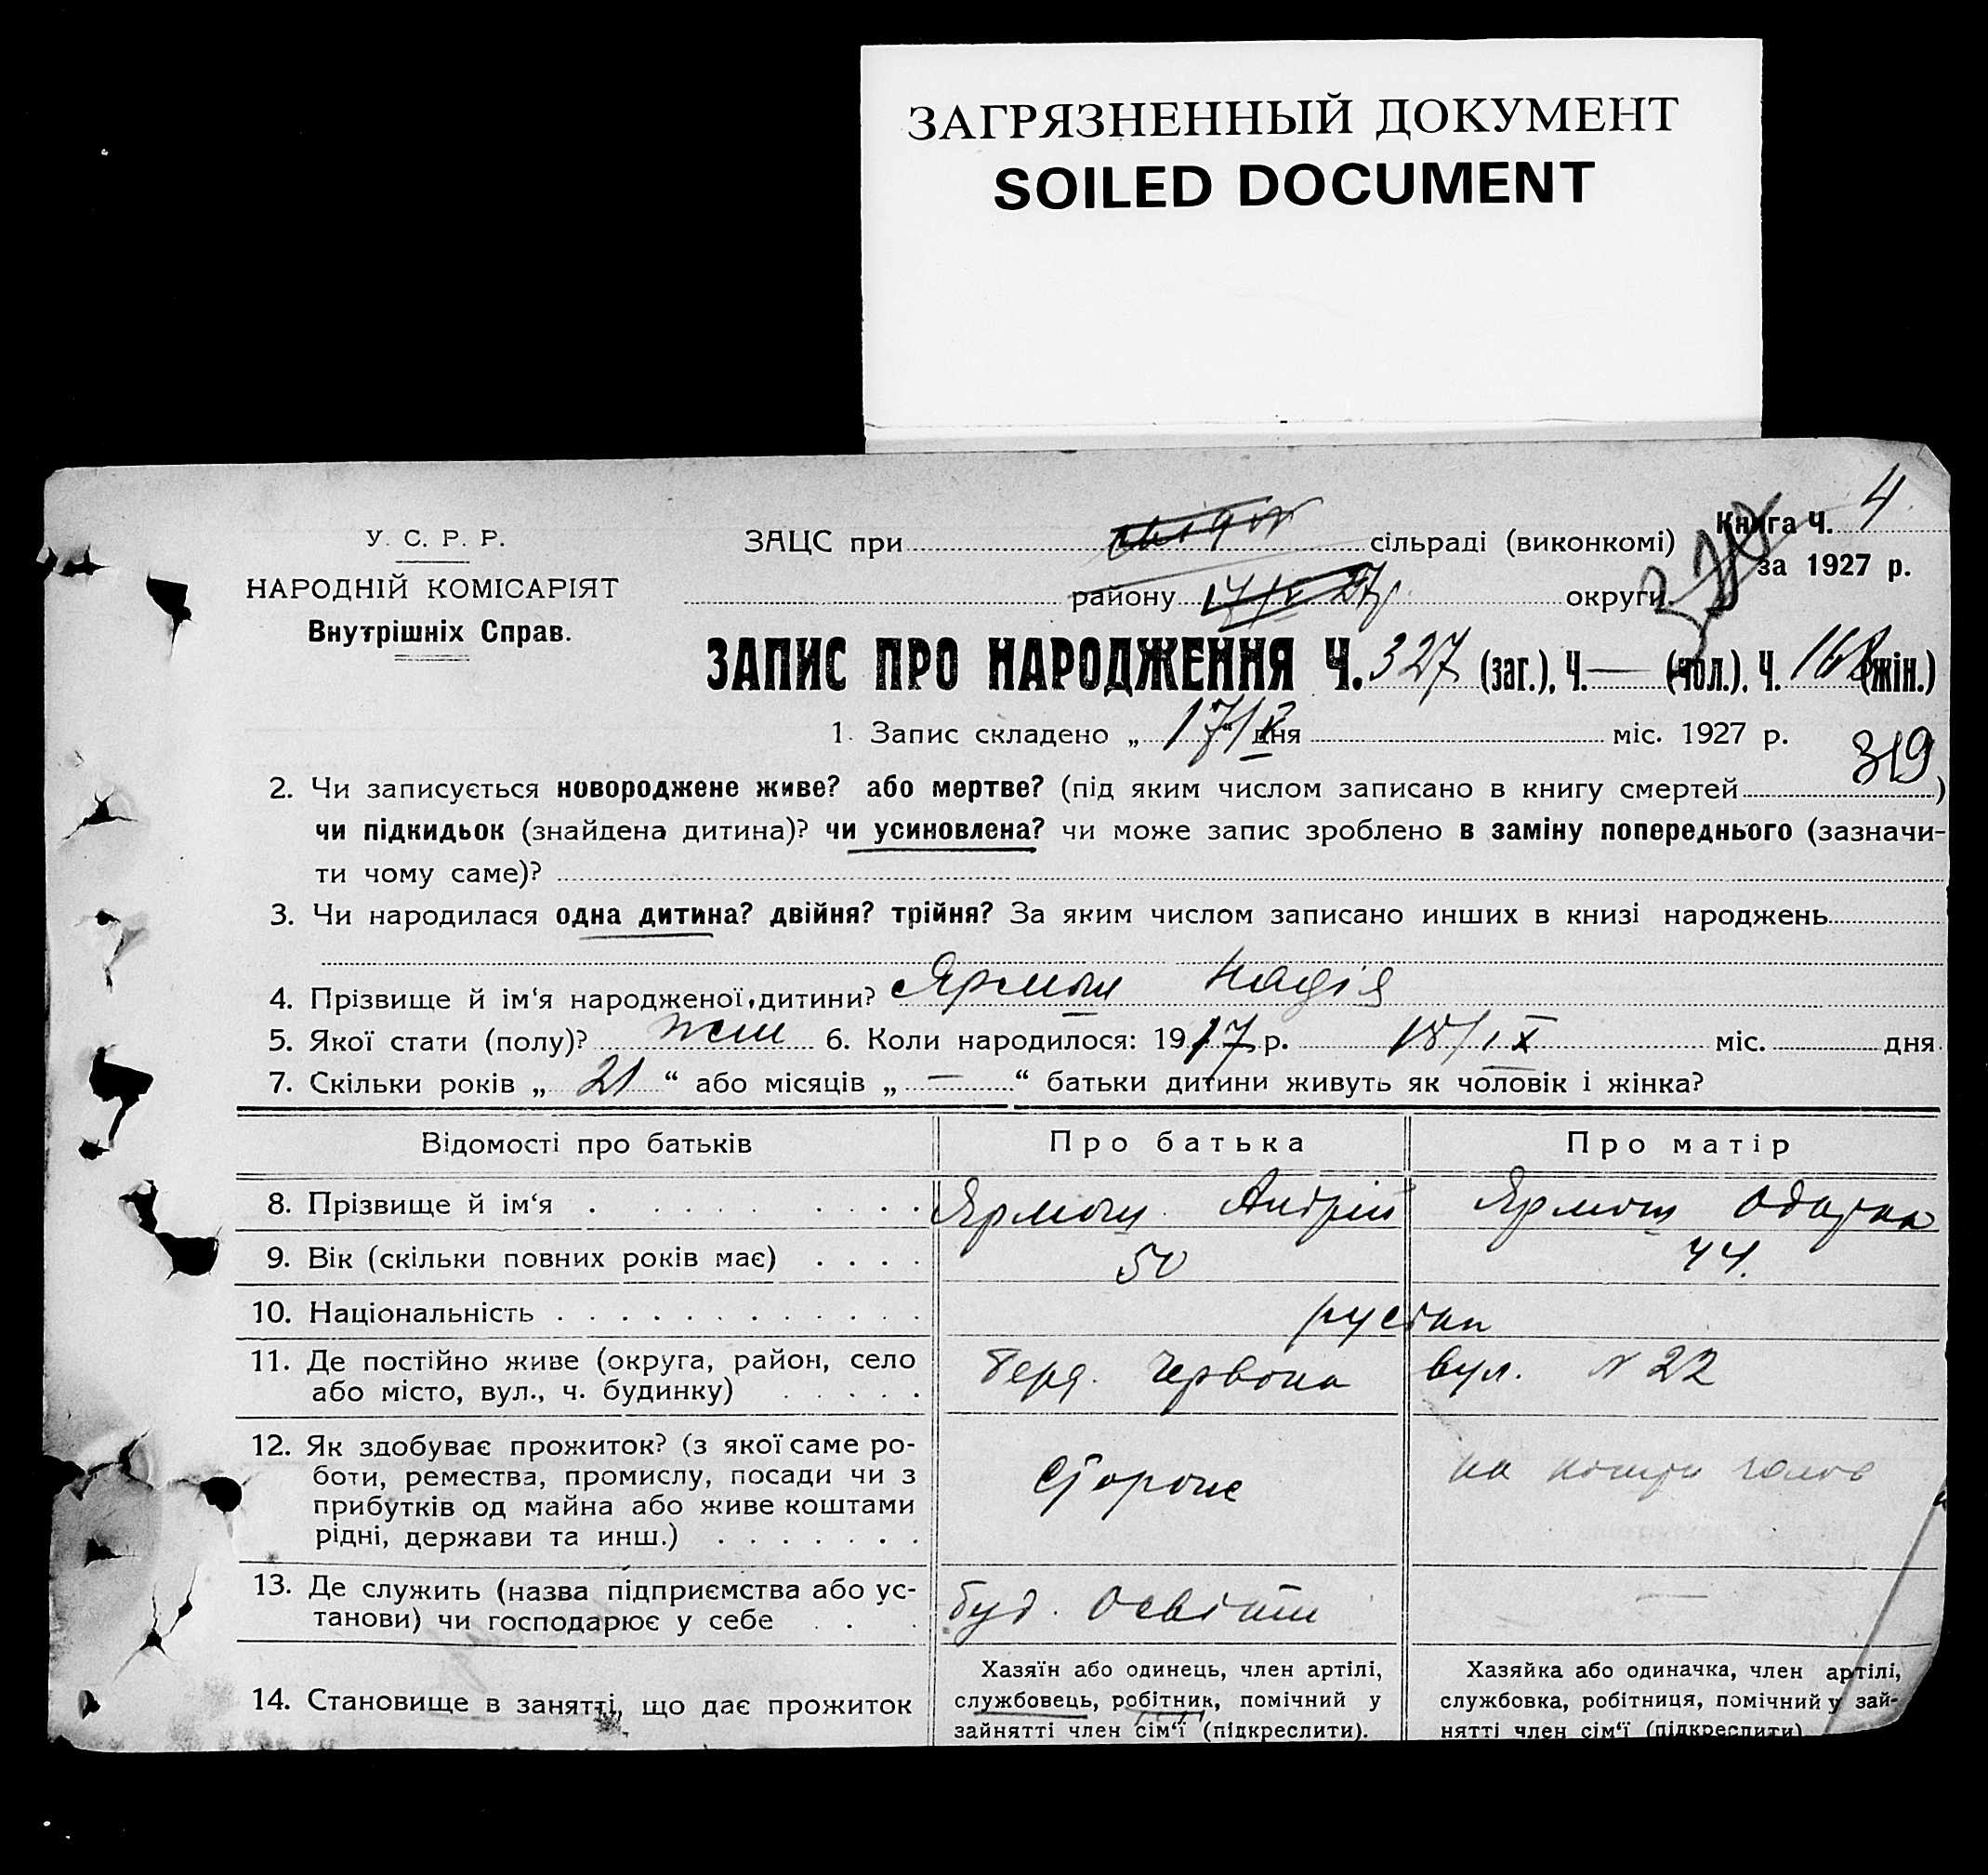 ЗАГРЯЗНЕННЫЙ ДОКУМЕНТ
SOILED DOCUMENT
У. С. Р. Р.
НАРОДНІЙ КОМІСАРІЯТ
Внутрішніх Справ.
ЗАЦС при сільраді (виконкомі)
Книга Ч. 4
за 1927 р.
району округи
ЗАПИС ПРО НАРОДЖЕННЯ Ч. 327 (заг.), Ч. — (чол.). Ч. 168 (жін.)
1. Запис складено „ 17/X дня міс. 1927 р.
319
2. Чи записується новороджене живе? або мертве? (під яким числом записано в книгу смертей )
чи підкидьок (знайдена дитина)? чи усиновлена? чи може запис зроблено в заміну попереднього (зазначи-
ти чому саме)?
3. Чи народилася одна дитина? двійня? трійня? За яким числом записано инших в книзі народжень
4. Прізвище й ім‘я народженої дитини? Ярмош Надія
5. Якої стати (полу)? жін 6. Коли народилося: 1917 р. 18/IX міс. дня
7. Скільки років „ 21 “ або місяців „ — “ батьки дитини живуть як чоловік і жінка?
Відомості про батьків
Про батька
Про матір
8. Прізвище й ім‘я
Ярмош Андрій
Ярмош Одарка
9. Вік (скільки повних років має)
50
44.
10. Національність
11. Де постійно живе (округа, район, село
або місто, вул., ч. будинку)
Червона вул. N 22
12. Як здобуває прожиток? (з якої саме ро-
боти, ремества, промислу, посади чи з
прибутків од майна або живе коштами
рідні, держави та инш.)
Сторож
на кошти голов
13. Де служить (назва підприємства або ус-
танови) чи господарює у себе
буд. Освіти
—
14. Становище в занятті, що дає прожиток
Хазяїн або одинець, член артілі,
службовець, робітник, помічний у
зайнятті член сім‘ї (підкреслити).
Хазяйка або одиначка, член артілі,
службовка, робітниця, помічний у зай-
нятті член сім‘ї (підкреслити)